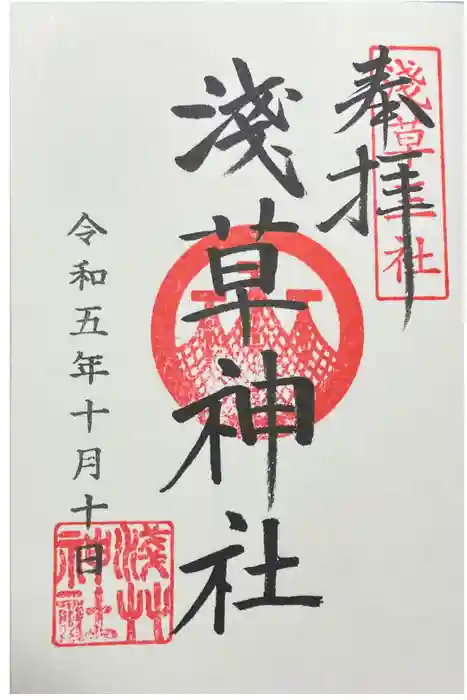 奉拝
淺草三社
淺草神社
令和五年十月十日
淺艸神社